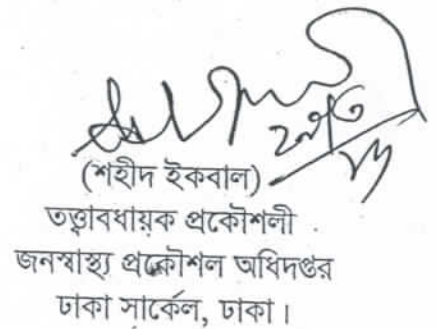 (শহীদ ইকবাল)
তত্ত্বাবধায়ক প্রকৌশলী
জনস্বাস্থ্য প্রকৌশল অধিদপ্তর
ঢাকা সার্কেল, ঢাকা।